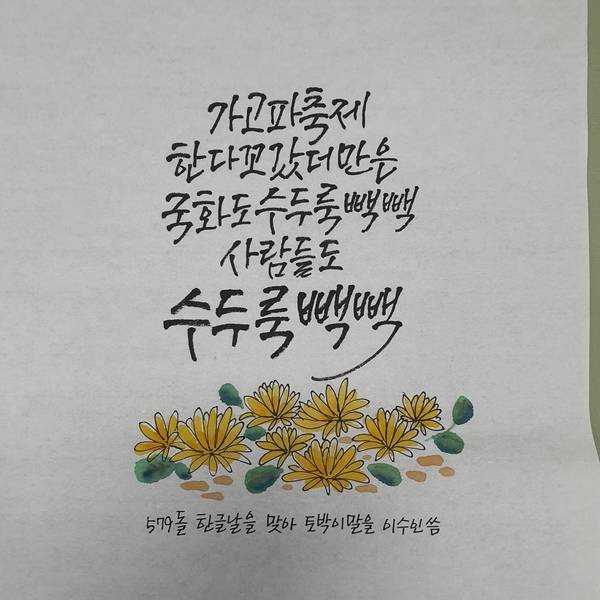 가고파축제
한다꼬갔더만은
국화도수두룩빽빽
사람들도
수두룩빽빽
579돌 한글날을 맞아 토박이말을 이수인씀